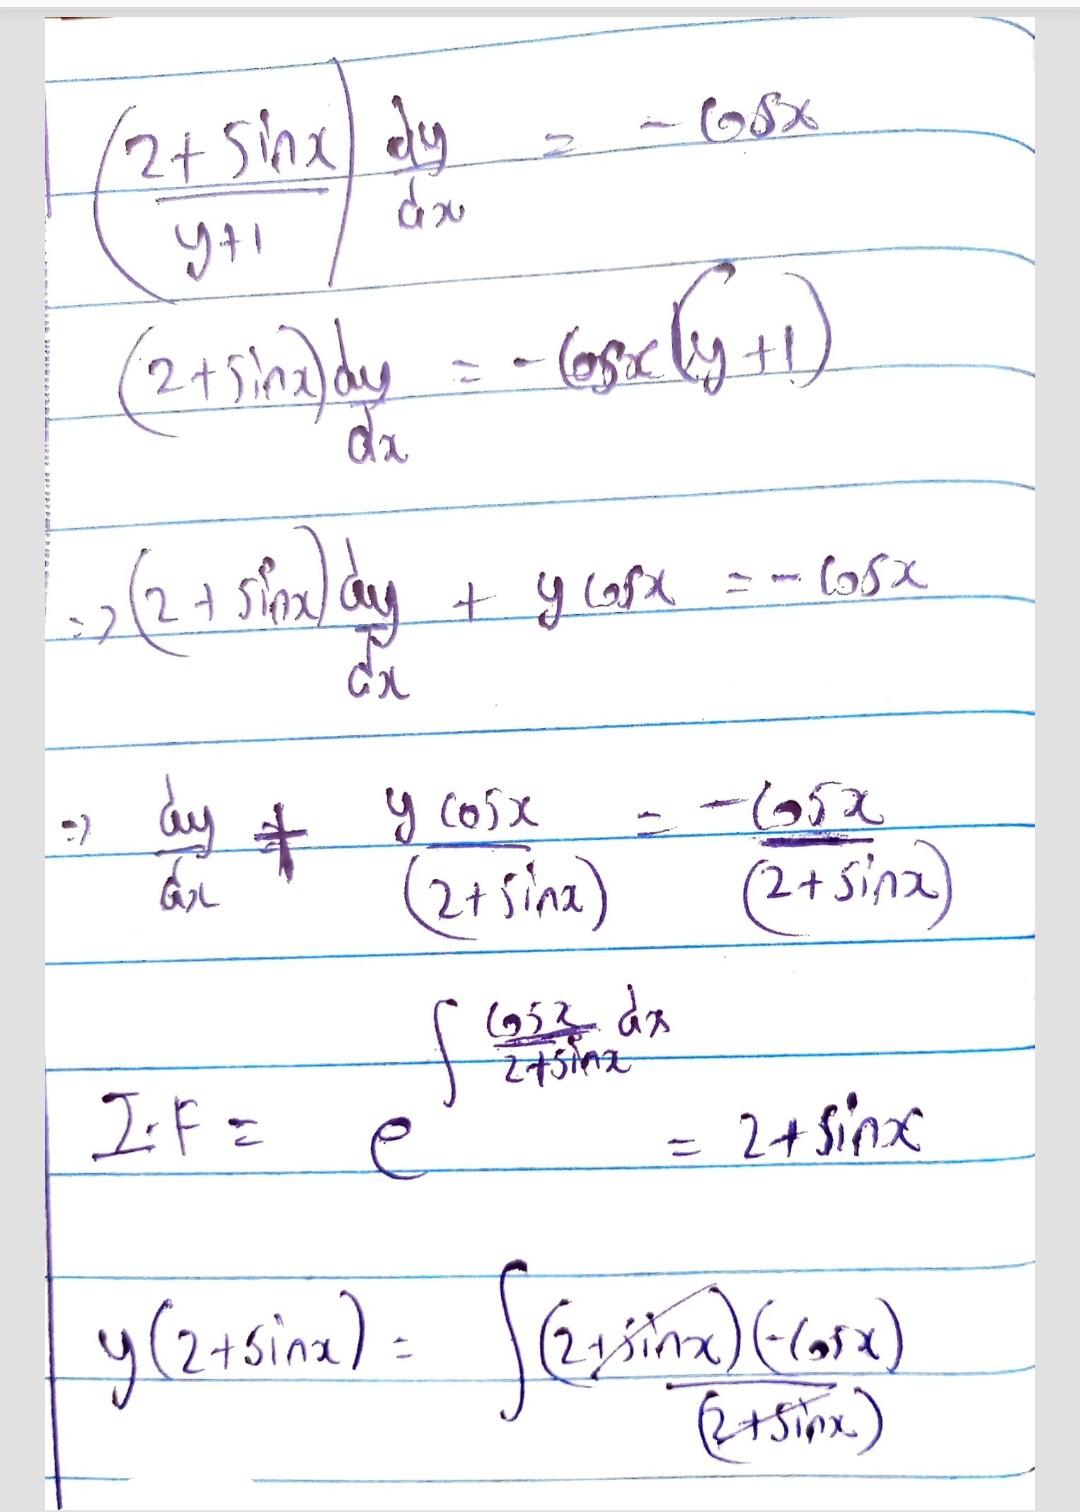 (2+sinx/y+1) dy/dx = -cosx
(2+sinx)dy/dx = -cosx(y+1)
=> (2+sinx)dy/dx + y cosx = -cosx
=> dy/dx + y cosx/(2+sinx) = -cosx/(2+sinx)
I.F = e^∫ cosx/2+sinx dx = 2+sinx
y(2+sinx) = ∫(2+sinx)(-cosx)/(2+sinx)